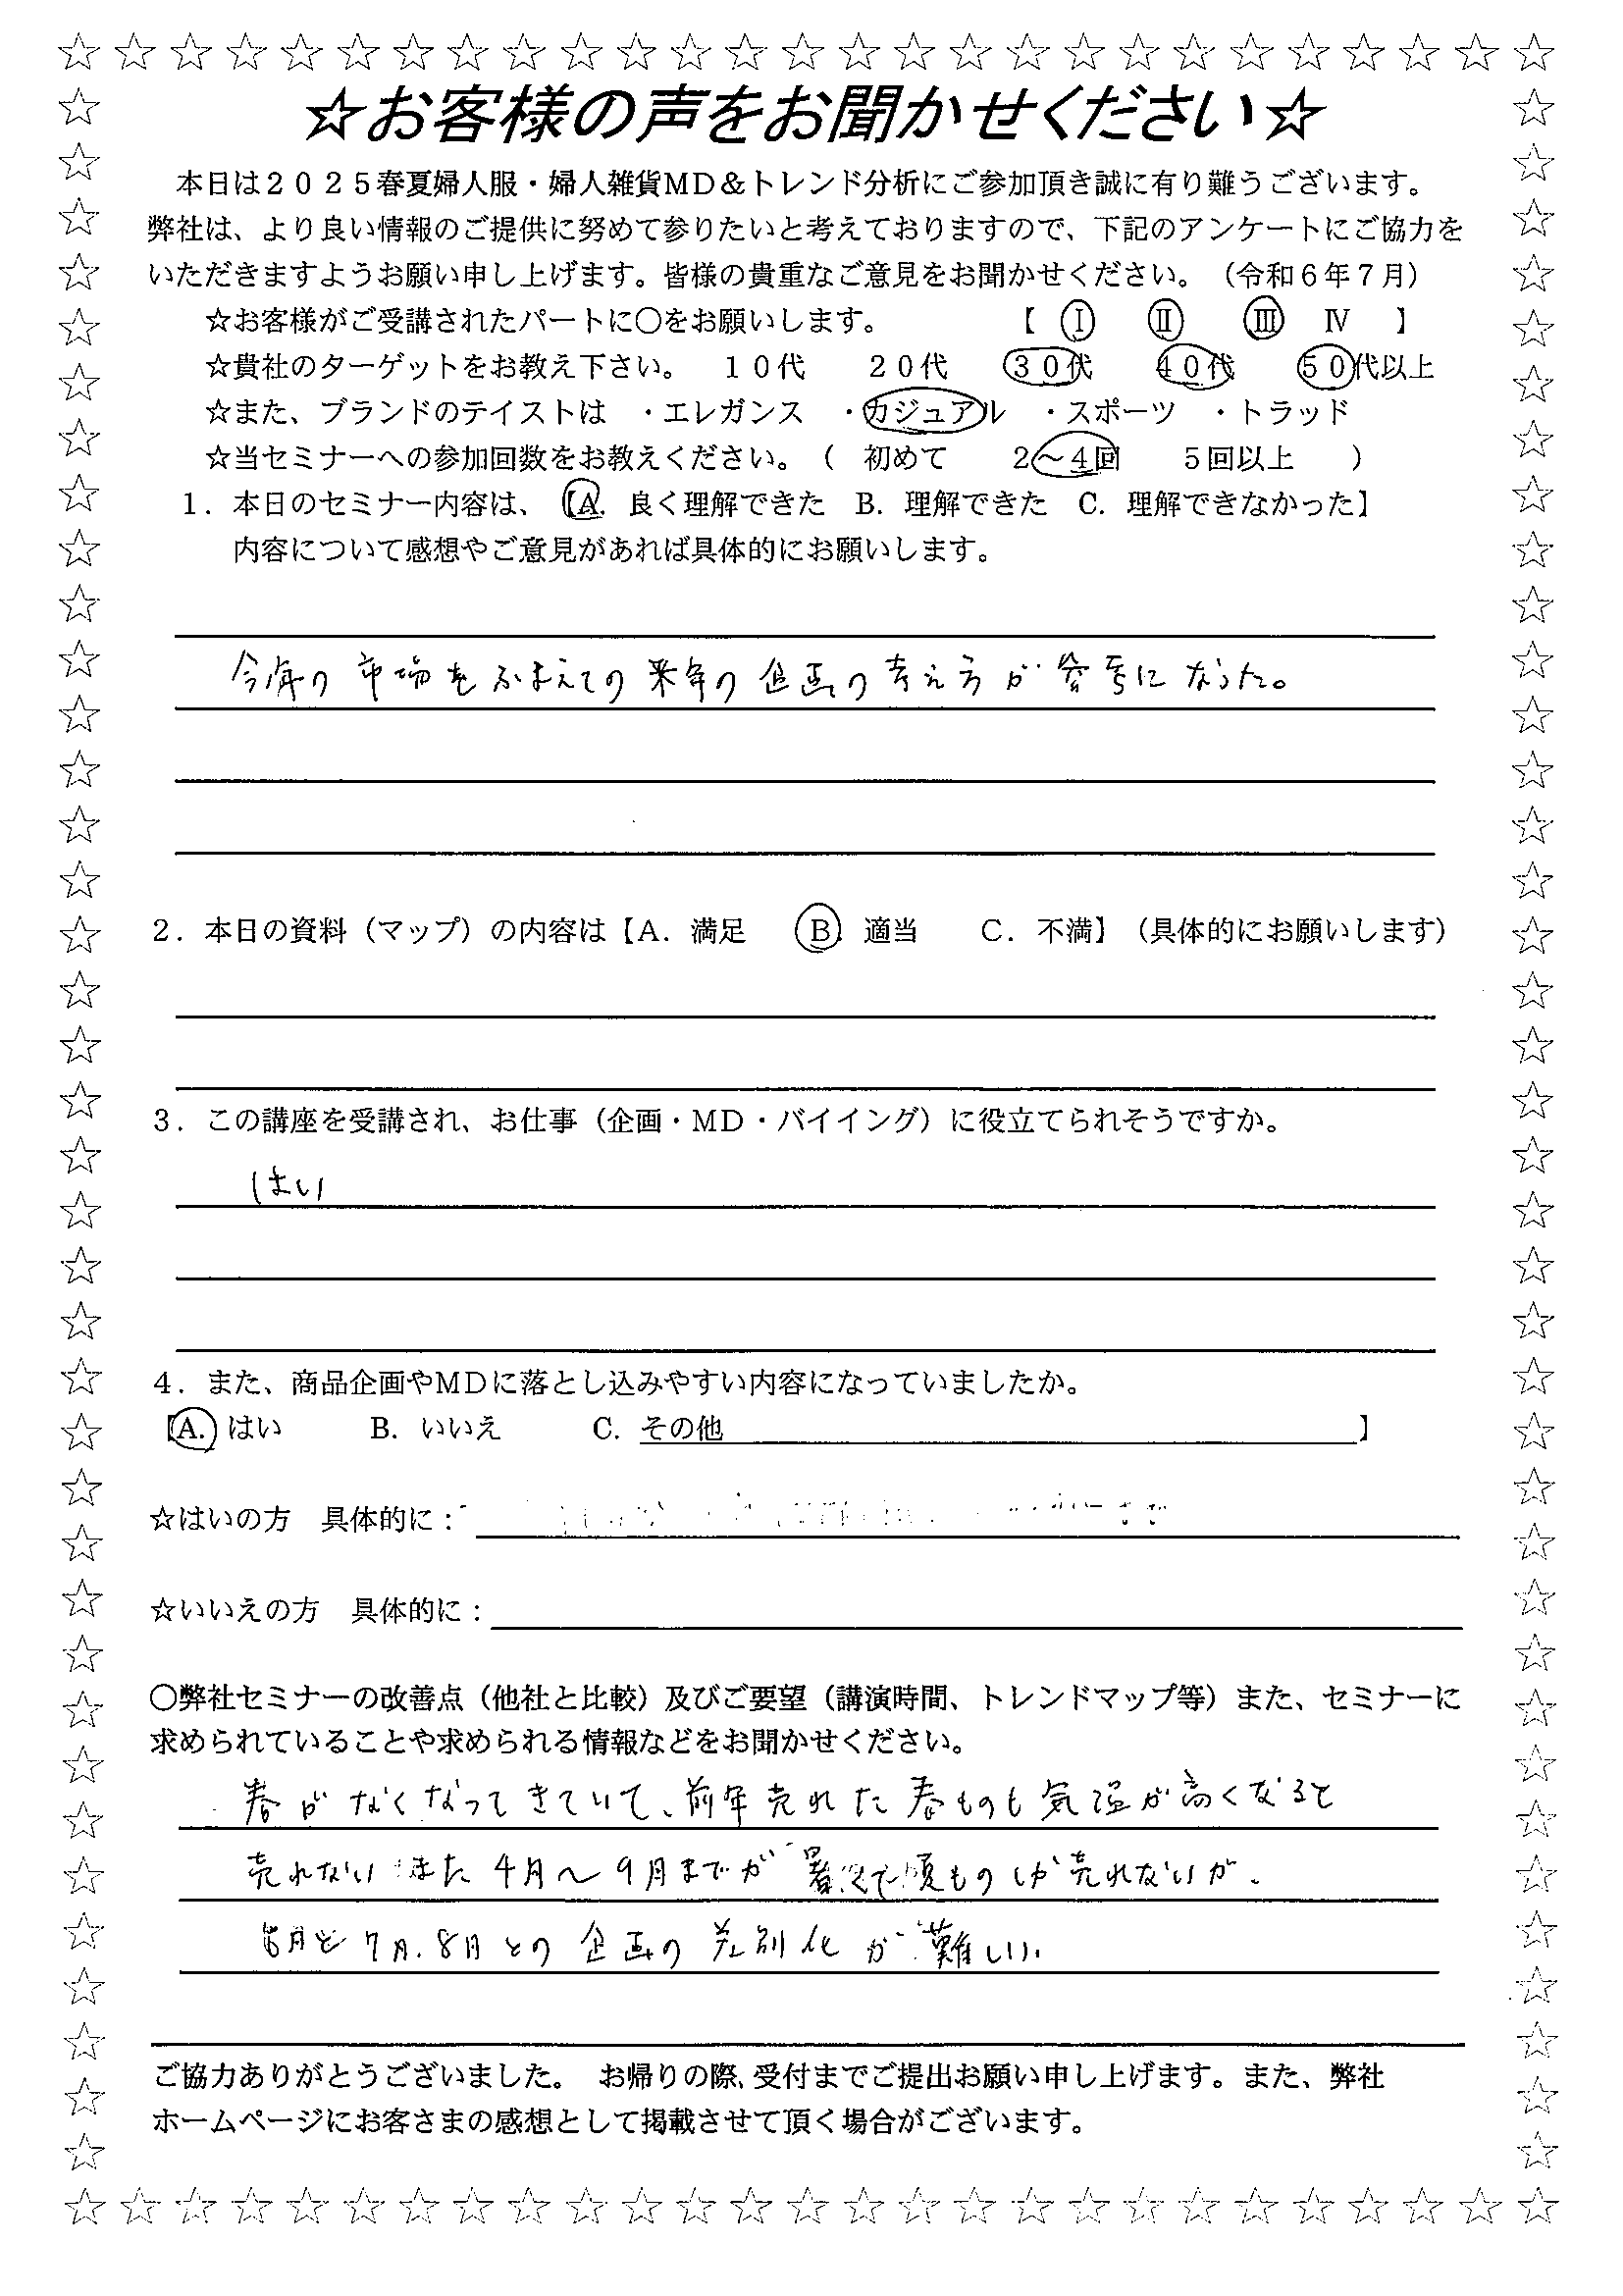 ☆お客様の声をお聞かせください☆
本日は２０２５春夏婦人服・婦人雑貨ＭＤ＆トレンド分析にご参加頂き誠に有り難うございます。
弊社は、より良い情報のご提供に努めて参りたいと考えておりますので、下記のアンケートにご協力を
いただきますようお願い申し上げます。皆様の貴重なご意見をお聞かせください。（令和６年７月）
☆お客様がご受講されたパートに〇をお願いします。　【　Ⅰ　Ⅱ　Ⅲ　Ⅳ　】
☆貴社のターゲットをお教え下さい。　１０代　２０代　３０代　４０代　５０代以上
☆また、ブランドのテイストは　・エレガンス　・カジュアル　・スポーツ　・トラッド
☆当セミナーへの参加回数をお教えください。（　初めて　２～４回　５回以上　）
１．本日のセミナー内容は、【A. 良く理解できた　B. 理解できた　C. 理解できなかった】
内容について感想やご意見があれば具体的にお願いします。
今年の市場をふまえての来年の企画の考え方が参考になった。
２．本日の資料（マップ）の内容は【Ａ．満足　Ｂ．適当　Ｃ．不満】（具体的にお願いします）
３．この講座を受講され、お仕事（企画・ＭＤ・バイイング）に役立てられそうですか。
はい
４．また、商品企画やＭＤに落とし込みやすい内容になっていましたか。
【A. はい　B. いいえ　C. その他　】
☆はいの方　具体的に：
☆いいえの方　具体的に：
〇弊社セミナーの改善点（他社と比較）及びご要望（講演時間、トレンドマップ等）また、セミナーに
求められていることや求められる情報などをお聞かせください。
春がなくなってきていて、前年売れた春ものも気温が高くなると
売れない また 4月～9月までが 暑くて夏ものしか売れないが、
6月と7月、8月との企画の差別化が難しい、
ご協力ありがとうございました。　お帰りの際、受付までご提出お願い申し上げます。また、弊社
ホームページにお客さまの感想として掲載させて頂く場合がございます。